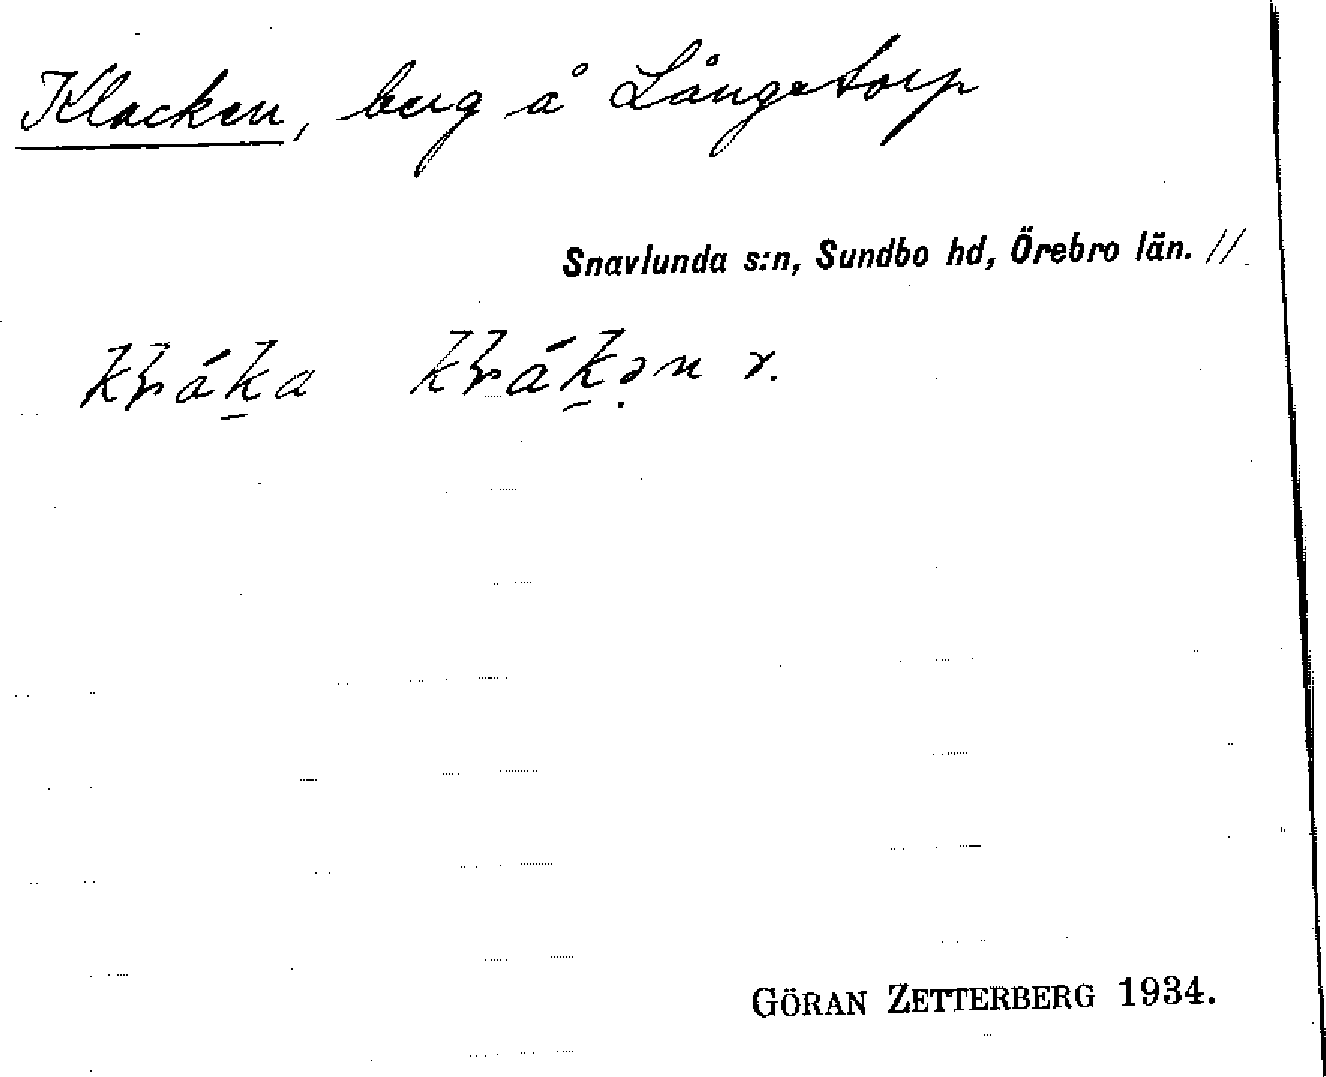 Klacken, berg å Långetorp
Snavlunda s:n, Sundbo hd, Örebro län. //
GÖRAN ZETTERBERG 1934.